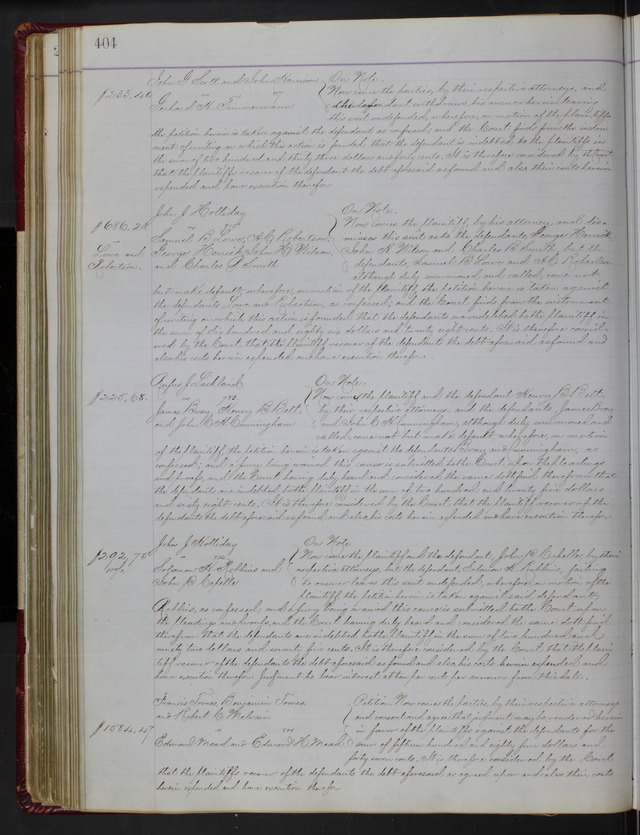 404
John G. Scott and John Harrison On Note.
$233.40 vs Now come the parties, by their respective attorneys, and
Gerhard H. Timmermann the defendant withdraws his answer herein leaving
this suit undefended, wherefore, on motion of the plaintiffs
the petition herein is taken against the defendant as confessed, and the Court finds from the instru
ment of writing on which this action is founded that the defendant is indebted to the plaintiffs in
the sum of two hundred and thirty three dollars and forty cents. It is therefore considered by the Court
that the plaintiffs recover of the defendant the debt aforesaid as found and also their costs herein
expended and have execution therefor.
John J. Holliday On Note.
$686.28 vs Now comes the plaintiff, by his attorney, and dis
Samuel B. Lowe, A. C. Robertson, misses this suit as to the defendants, George
Lowe and George John H. Wilson John H. Wilson and Charles B. Smith, but the
Robertson. and Charles B. Smith defendants, Samuel B. Lowe and A. C. Robertson
although duly summoned and called, come not
but make default, wherefore, on motion of the plaintiff, the petition herein is taken against
the defendants, Lowe and Robertson, as confessed, and the Court finds from the instrument
of writing on which this action is founded, that the defendants are indebted to the plaintiff in
the sum of six hundred and eighty six dollars and twenty eight cents. It is therefore consid
ered by the Court that the plaintiff recover of the defendants the debt aforesaid as found and
also his costs herein expended and have execution therefor.
Rufus J. Lackland On Note.
$225.68. vs. Now come the plaintiff and the defendant Henry B. Belt,
James Bray, Henry B. Belt by their respective attorneys, and the defendants, James Bray
and John C. H. Cunningham and John C. H. Cunningham, although duly summoned and
called, come not but make default, wherefore, on motion
of the plaintiff, the petition herein is taken against the defendants Bray and Cunningham, as
confessed; and a jury being waived this cause is submitted to the Court upon the pleadings
and proofs, and the Court having duly heard and considered the same doth find therefrom that
the defendants are indebted to the plaintiff in the sum of two hundred and twenty five dollars
and sixty eight cents. It is therefore considered by the Court that the plaintiff recover of the
defendants the debt aforesaid as found, and also his costs herein expended and have execution therefor.
John J. Holliday On Note
$292.70 vs Now come the plaintiff and the defendant, John B. by their
Solomon H. Robbins and respective attorneys, but the defendant, Solomon H. Robbins, failing
John B. to answer leaves this suit undefended, wherefore, on motion of the
plaintiff the petition herein is taken against said defendant,
Robbins, as confessed, and a jury being waived this cause is submitted to the Court upon
the pleadings and proofs, and the Court having duly heard and considered the same doth find
therefrom that the defendants are indebted to the plaintiff in the sum of two hundred and
ninety two dollars and seventy cents. It is therefore considered by the Court that the plain
tiff recover of the defendants the debt aforesaid as found and also his costs herein expended, and
have execution therefor. Judgment to bear interest at ten per cent per annum from this date.
Francis Tomes, Benjamin Tomes Petition. Now come the parties, by their respective attorneys
and Robert C. and consent and agree that judgment may be rendered herein
$1584.47 vs in favor of the plaintiffs against the defendants for the
Edward Mead and Edward H. Mead sum of fifteen hundred and eighty four dollars and
forty seven cents. It is therefore considered by the Court
that the plaintiffs recover of the defendants the debt aforesaid as agreed upon and also their costs
herein expended and have execution therefor.